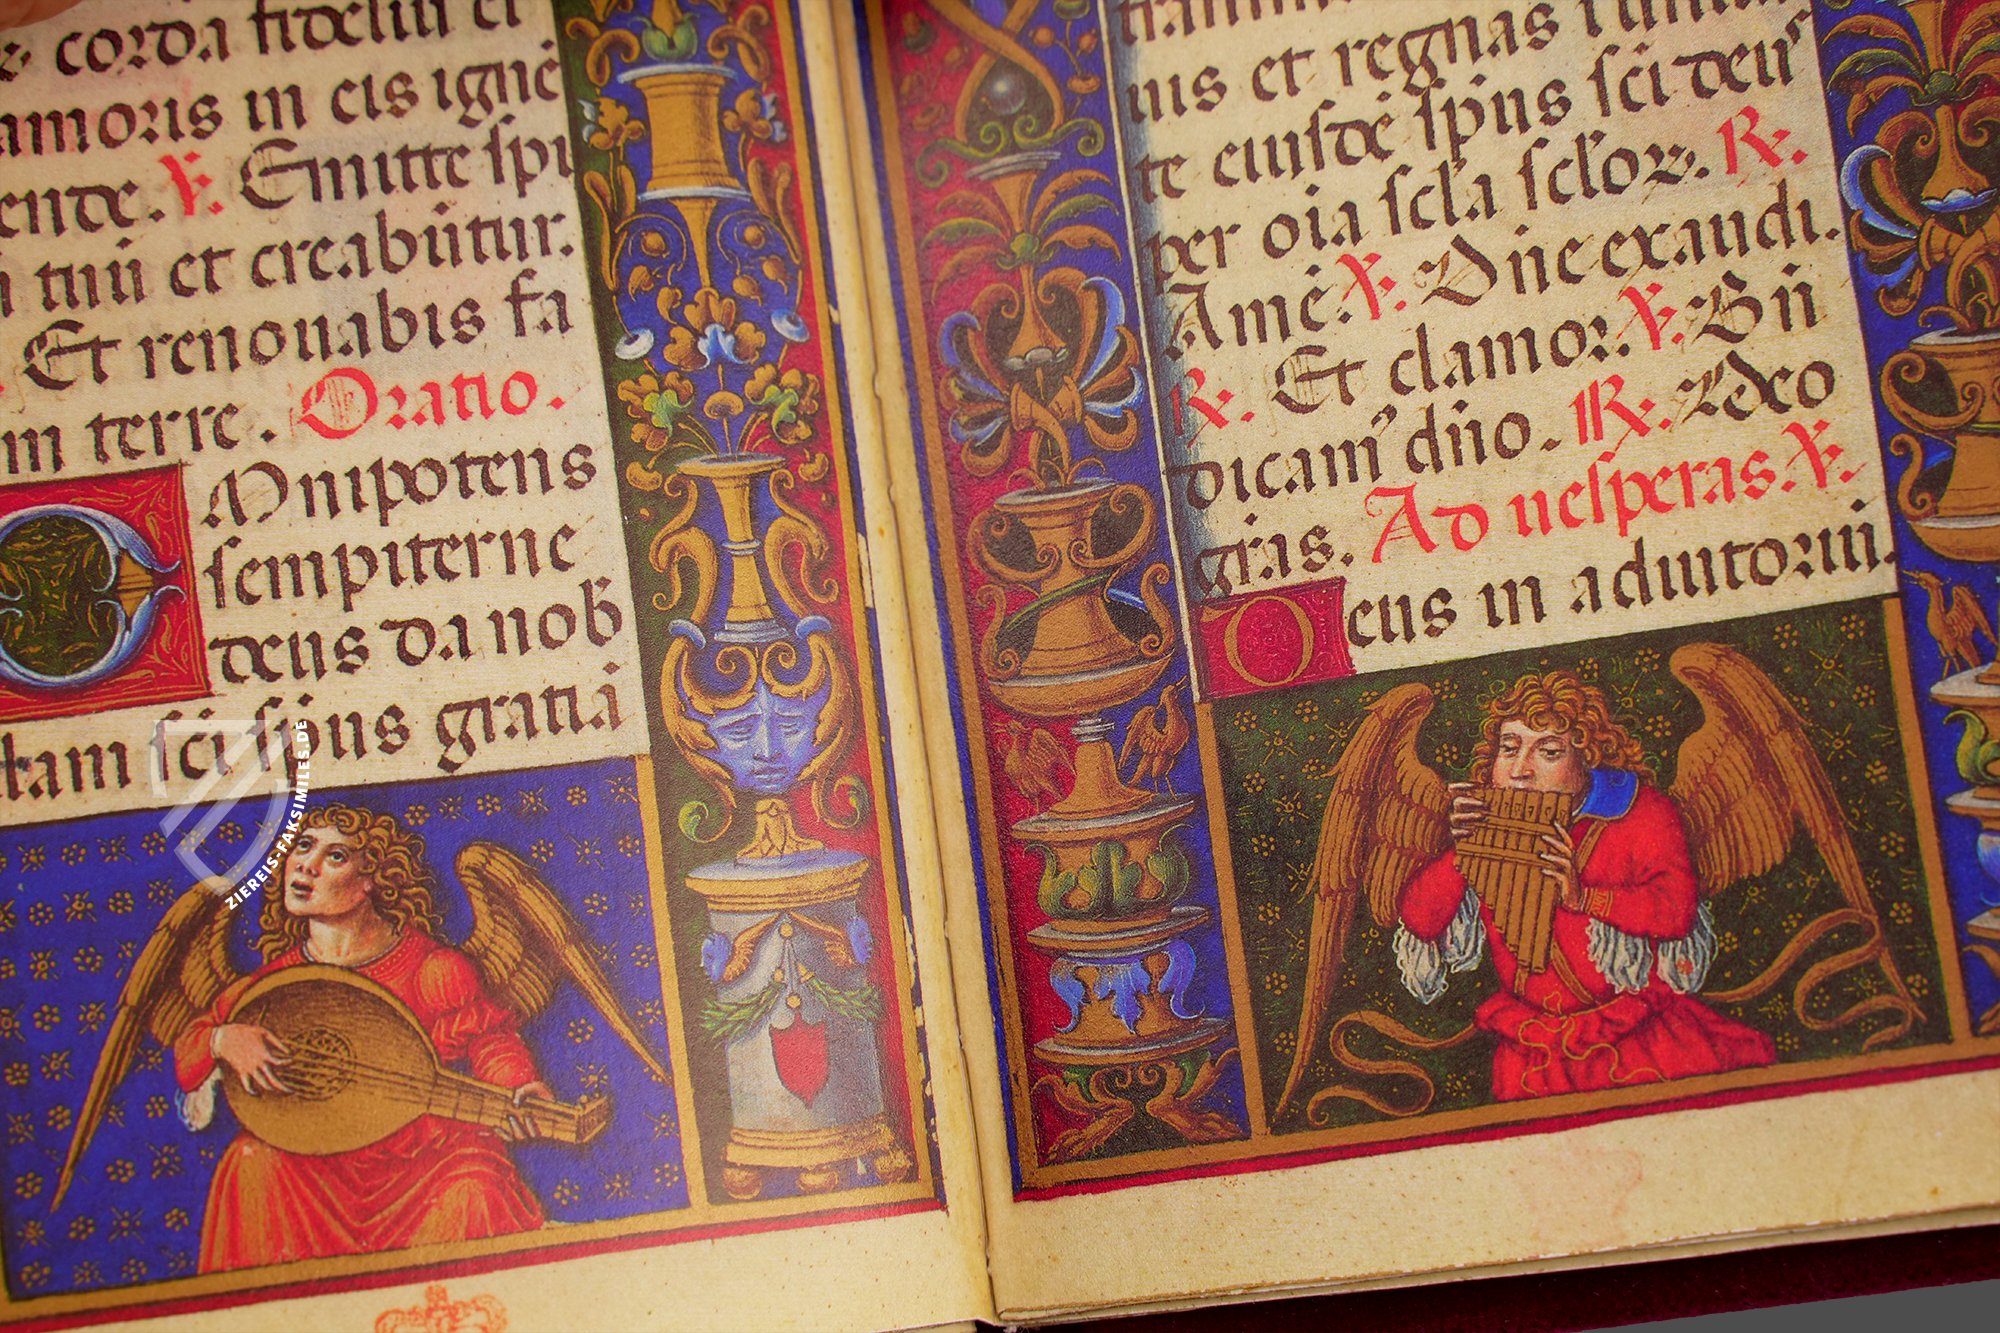 corda fideliu et
amoris in eis igne
ende. V. Emitte spi
tuu et creabutur.
Et renouabis fa
m terre. Oratio.
Omnipotens
sempiterne
deus da nob
tam sci spus gratia
uis et regnas
te eiusde spus sci deus
per oia scla sclor. R.
Ame. V. Dne exaudi.
R. Et clamor. V. Bn
dicam dno. R. Deo
gras. Ad uesperas. V.
Deus in adiutoriu.
ZIEREIS-FAKSIMILES.DE